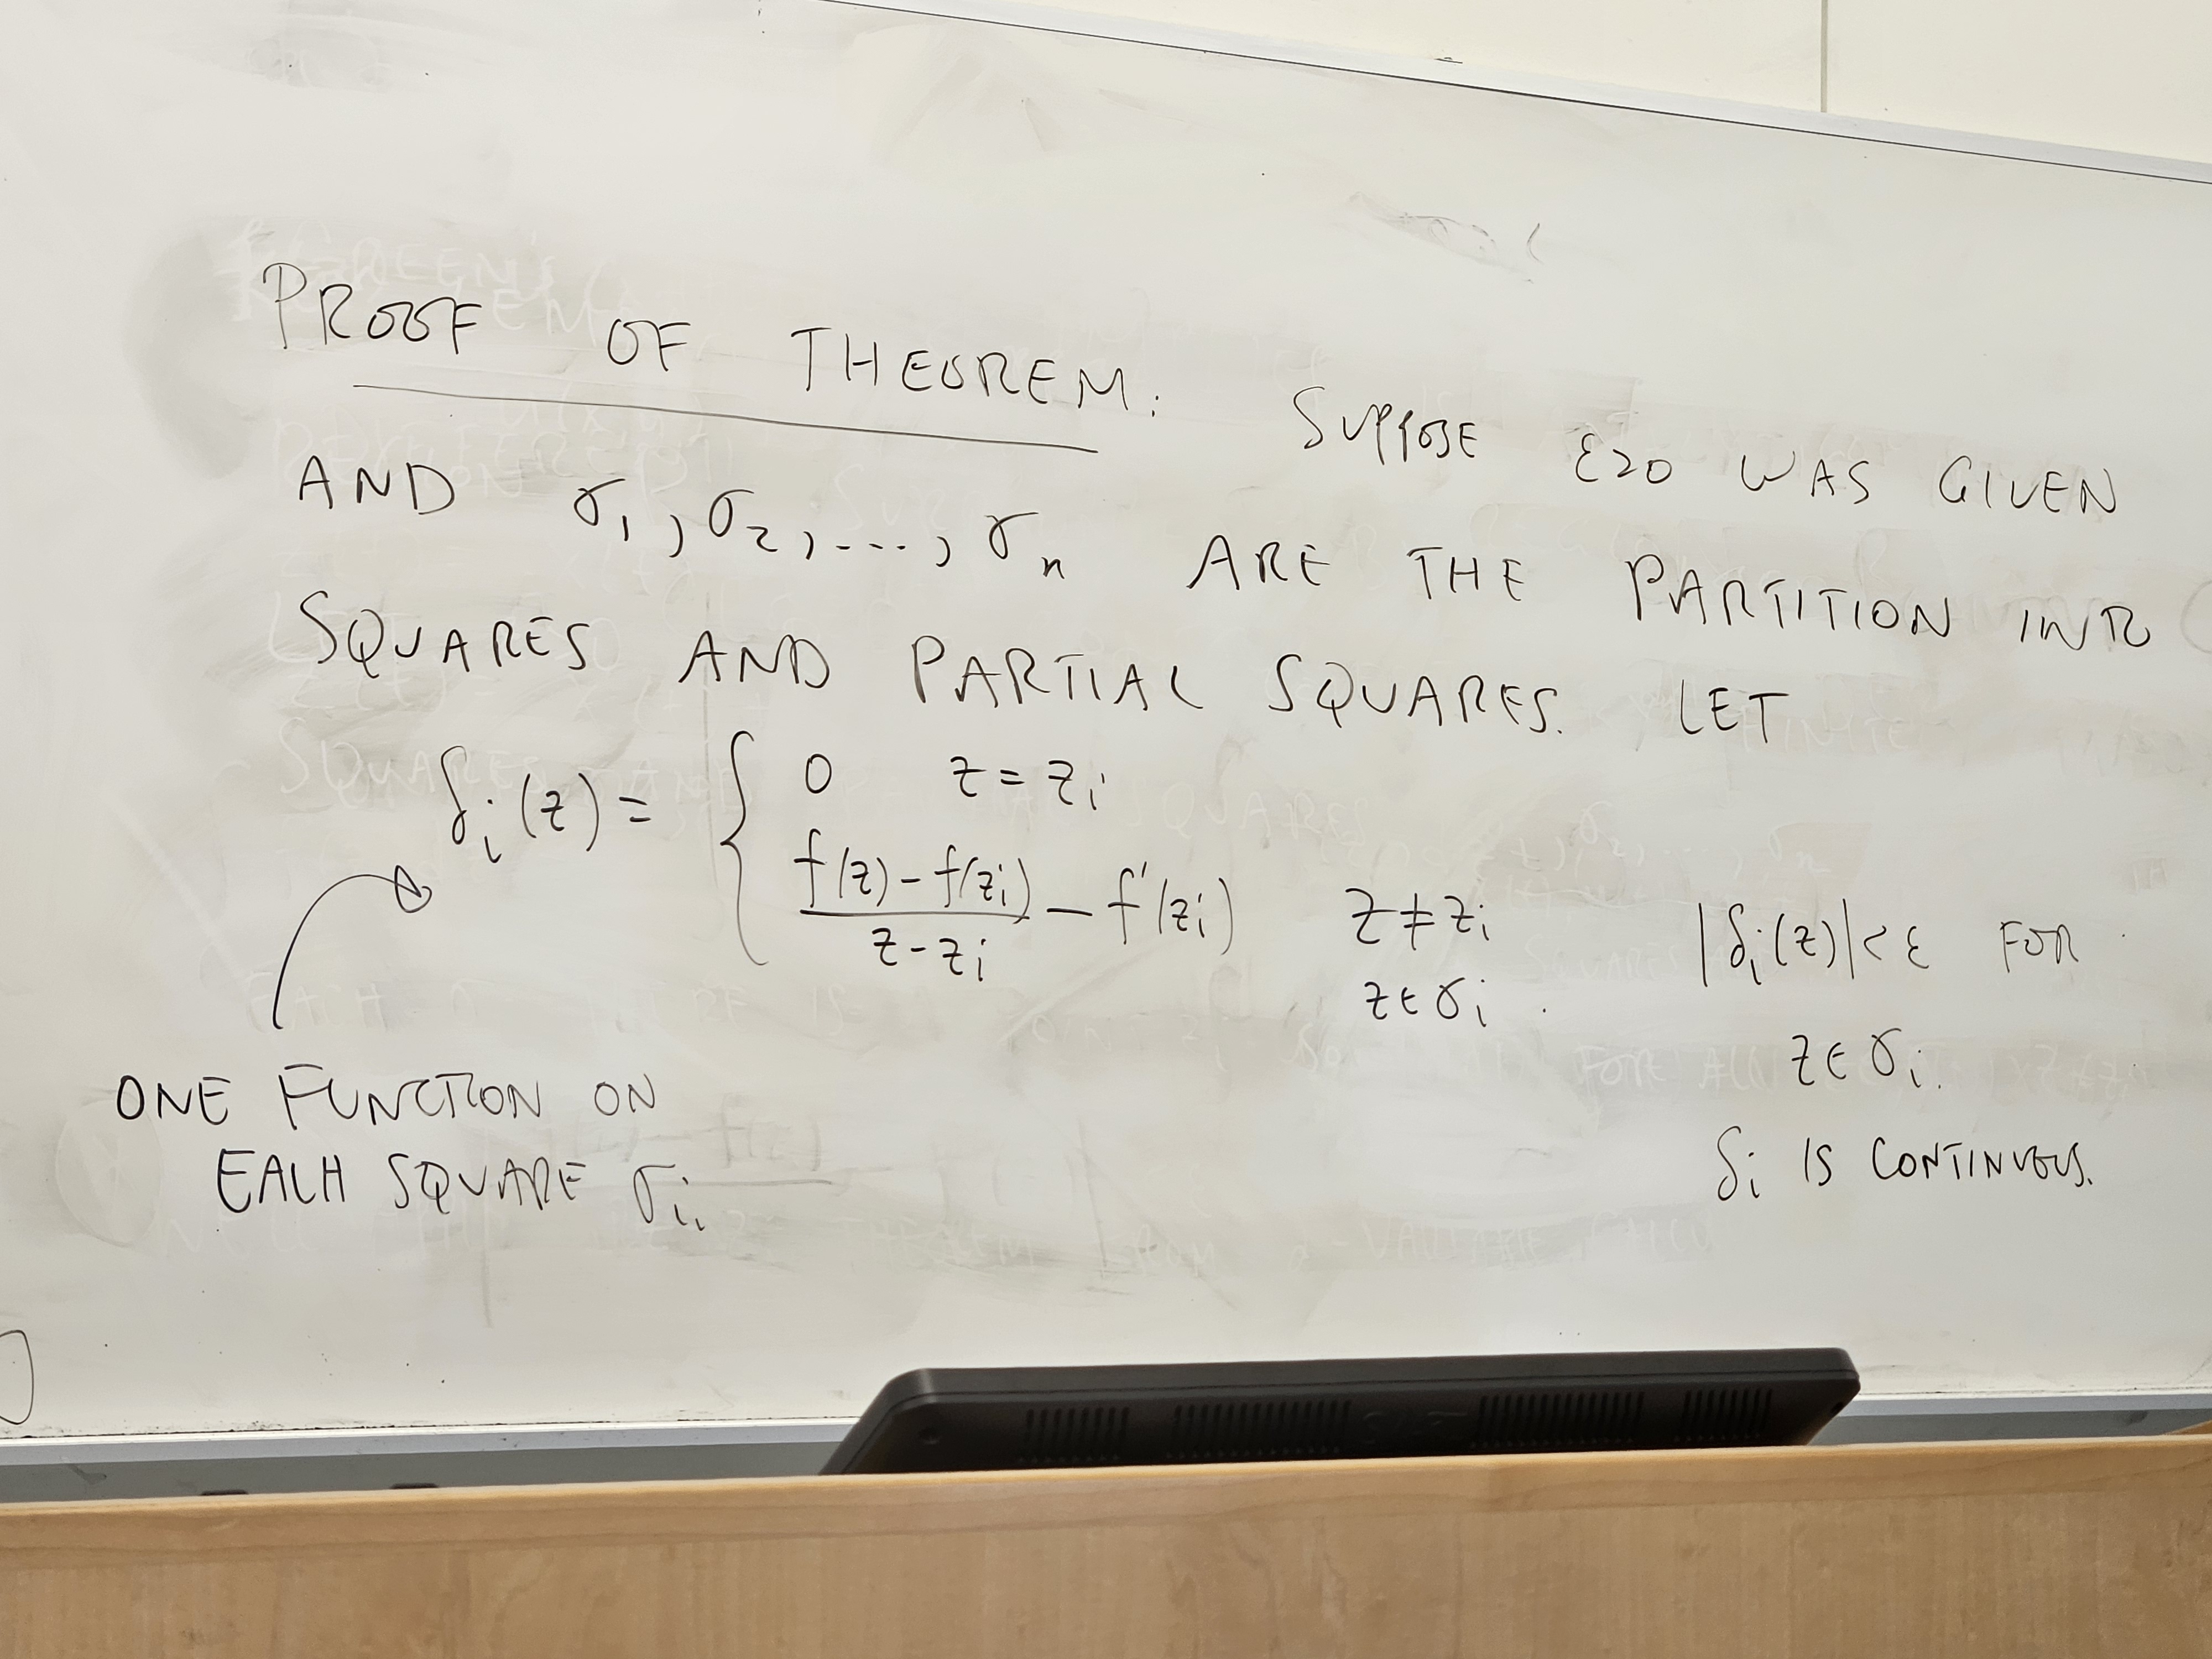 PROOF OF THEOREM: SUPPOSE ε>0 WAS GIVEN
AND σ₁, σ₂, ..., σₙ ARE THE PARTITION INTO
SQUARES AND PARTIAL SQUARES. LET
δᵢ(z) = { 0 z = zᵢ
(f(z) - f(zᵢ))/(z - zᵢ) - f'(zᵢ) z ≠ zᵢ
z ∈ σᵢ.
|δᵢ(z)| < ε FOR
z ∈ σᵢ.
δᵢ IS CONTINUOUS.
ONE FUNCTION ON
EACH SQUARE σᵢ.